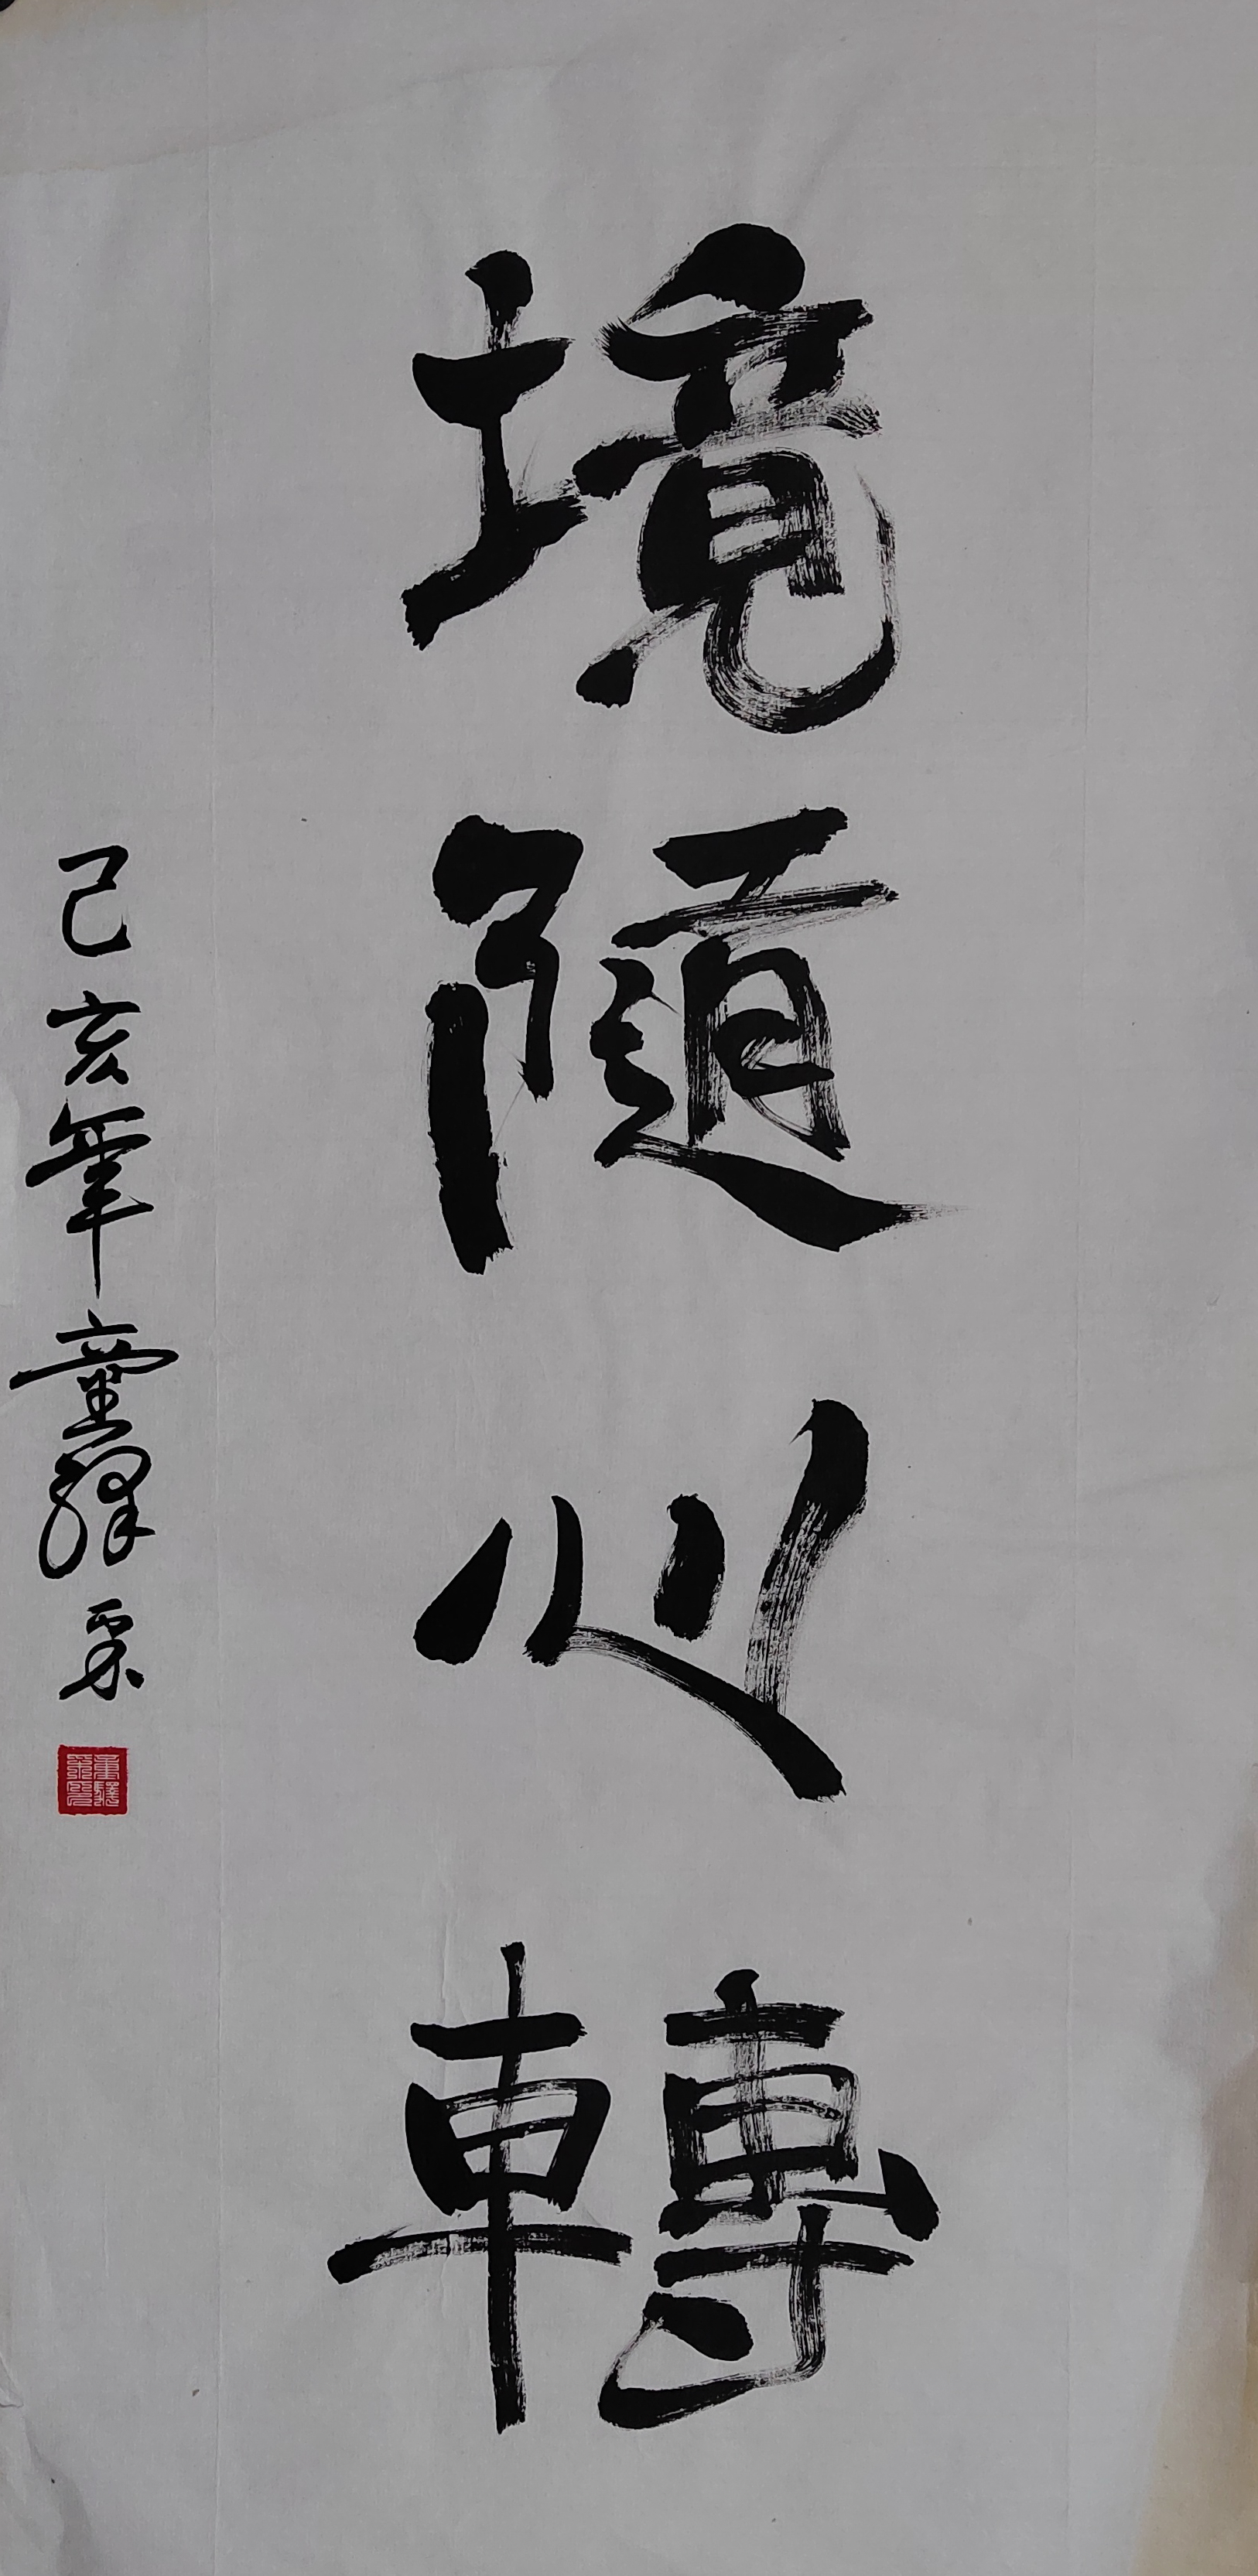 境隨心轉
己亥年童驛栗